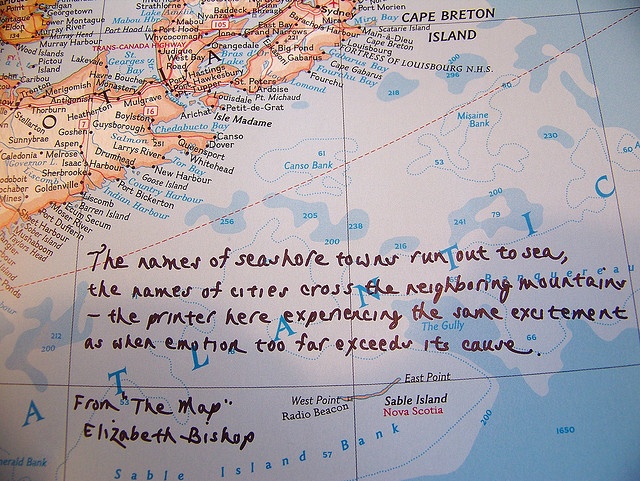 Cardigan
Georgetown
Lower Montague
Murray River
Murray Harbour
Murray Head
Wood Islands
Pictou Island
Caribou
Lakevale
Trenton
Merigomish
Antigonish
Thorburn
Heatherton
Sunnybrae
Goshen
Aspen
Caledonia
Melrose
Isaac's Harbour
Sherbrooke
Goldenville
Liscomb
Barren Island
Ecum Secum
Moser River
Port Dufferin
Port Bickerton
Indian Harbour
Country Harbour
Goose Island
New Harbour
Tor Bay
Drumhead
Larrys River
Whitehead
Queensport
Dover
Canso
Chedabucto Bay
Salmon
Guysborough
Boylston
Mulgrave
Monastery
Havre Boucher
St. Georges Bay
TRANS-CANADA HIGHWAY
Strathlorne
Mabou Hbr
Mabou
Port Hood Is.
Port Hood
Whycocomagh
Nyanza
Baddeck
Judique
West Bay Road
Orangedale
Port Hastings
Port Hawkesbury
St. Peters
Ardoise
Louisdale
Pt. Michaud
Petit-de-Grat
Arichat
Isle Madame
Iona
Grand Narrows
East Bay
Big Pond
Gabarus
Fourchu
Fourchu Bay
Gabarus Bay
Cape Gabarus
FORTRESS OF LOUISBOURG N.H.S.
Louisbourg
Cape Breton
Main-à-Dieu
Scatarie Island
Port Morien
Mira Bay
CAPE BRETON
ISLAND
105
16
7
251
218
200
296
60
Misaine
Bank
230
60
61
53
Canso Bank
200
256
205
238
241
79
200
216
A T L A N T I C
The names of seashore towns run out to sea,
the names of cities cross the neighboring mountains
– the printer here experiencing the same excitement
as when emotion too far exceeds its cause.
Banquereau
The Gully
66
212
200
53
From "The Map"
Elizabeth Bishop
East Point
West Point
Radio Beacon
Sable Island
Nova Scotia
200
57
1650
Emerald Bank
Sable Island Bank